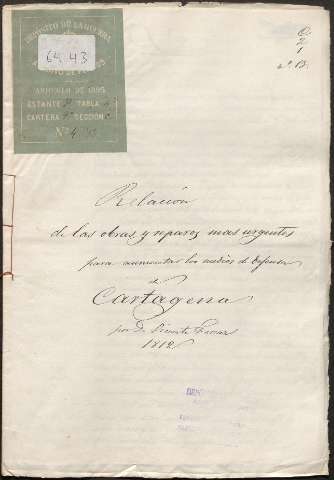 DEPÓSITO DE LA GUERRA
6443
ARCHIVO DE 1895
ESTANTE TABLA
CARTERA SECCIÓN
Nº
C
2
1
nº 13
Relación
de las obras y reparos mas urgentes
para aumentar los medios de defensa
de
Cartagena
por Dn. Vicente
1812